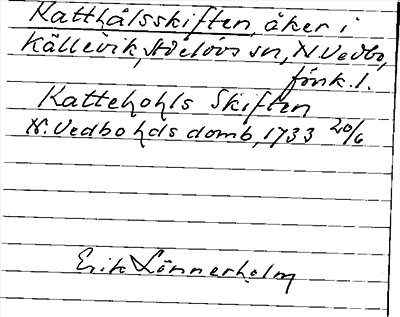 Katthålsskiften, åker i
Källevik, Adelövs sn, N. Vedbo,
Jönk. l.
Kattehohls Skiften
N. Vedbo hds domb, 1733 20/6
Erik Lönnerholm